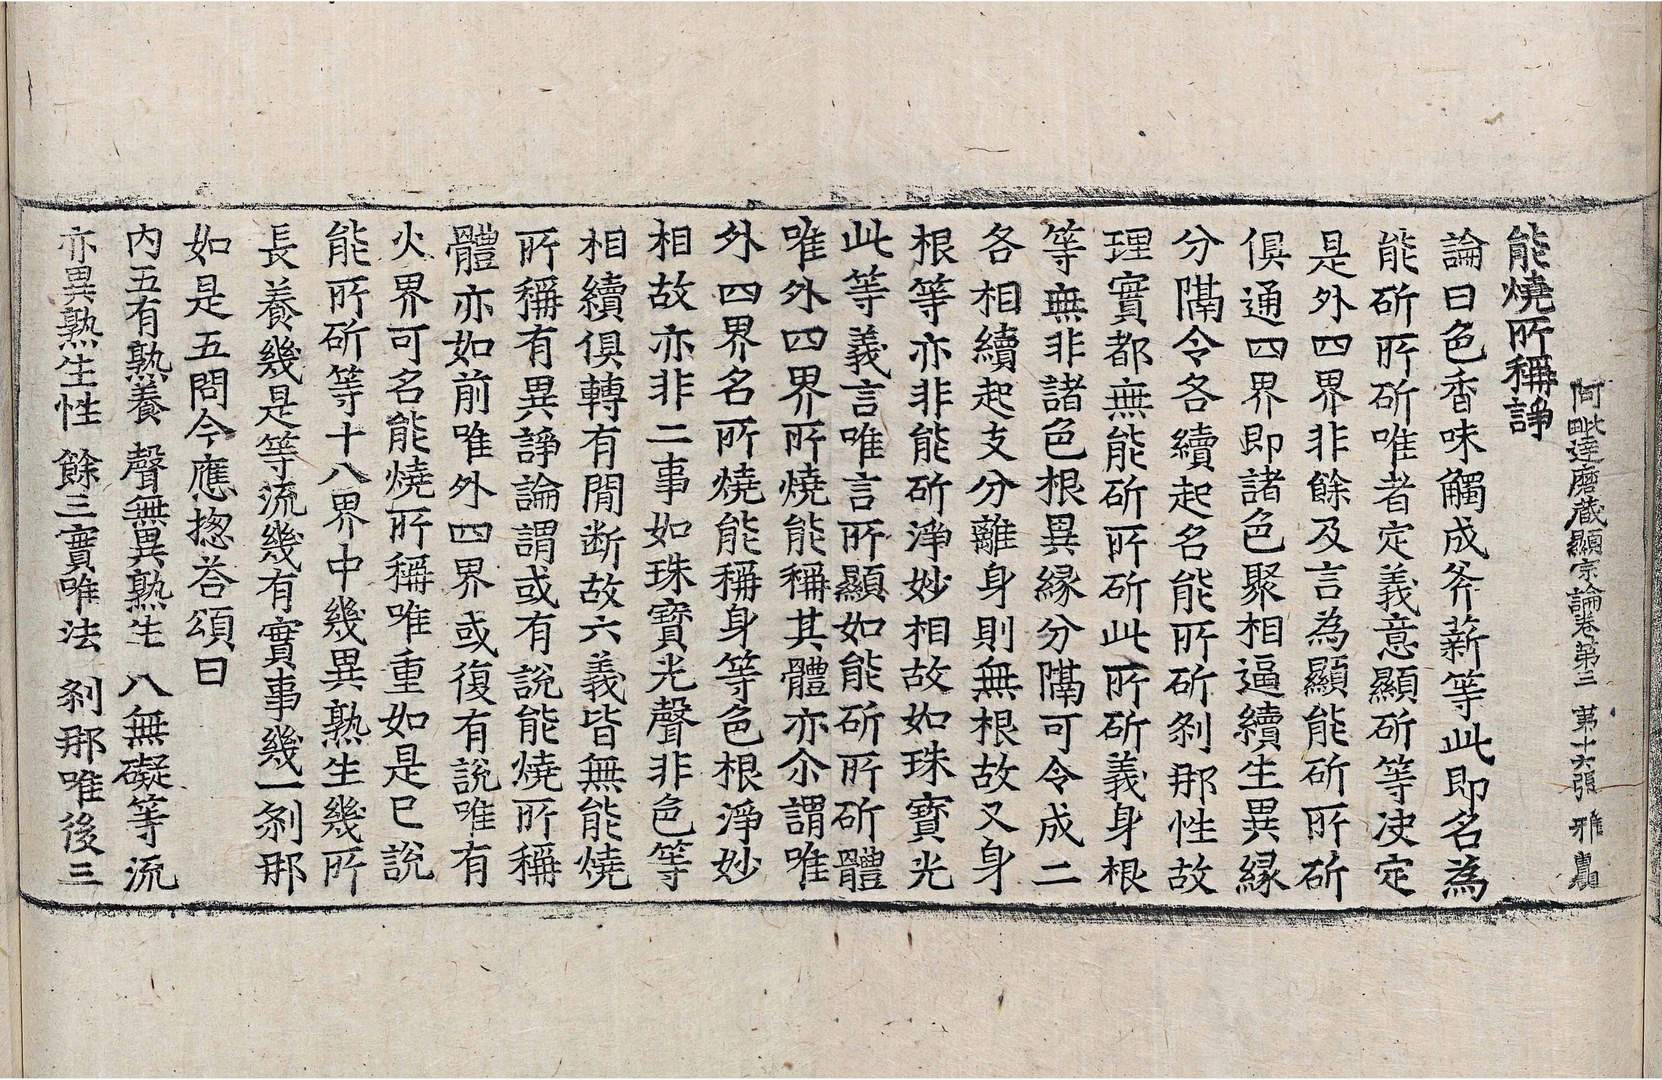 阿毗達磨藏顯宗論卷第三 第十六張 雅
能燒所稱諍
論曰色香味觸成斧薪等此即名為
能斫所斫唯者定義意顯斫等決定
是外四界非餘及言為顯能斫所斫
俱通四界即諸色聚相逼續生異緣
分隔令各續起名能所斫剎那性故
理實都無能斫所斫此所斫義身根
等無非諸色根異緣分隔可令成二
各相續起支分離身則無根故又身
根等亦非能斫淨妙相故如珠寶光
此等義言唯言所顯如能斫所斫體
唯外四界所燒能稱其體亦尒謂唯
外四界名所燒能稱身等色根淨妙
相故亦非二事如珠寶光聲非色等
相續俱轉有閒断故六義皆無能燒
所稱有異諍論謂或有說能燒所稱
體亦如前唯外四界或復有說唯有
火界可名能燒所稱唯重如是已說
能所斫等十八界中幾異熟生幾所
長養幾是等流幾有實事幾一剎那
如是五問今應揔荅頌曰
內五有熟養 聲無異熟生 八無礙等流
亦異熟生性 餘三實唯法 剎那唯後三